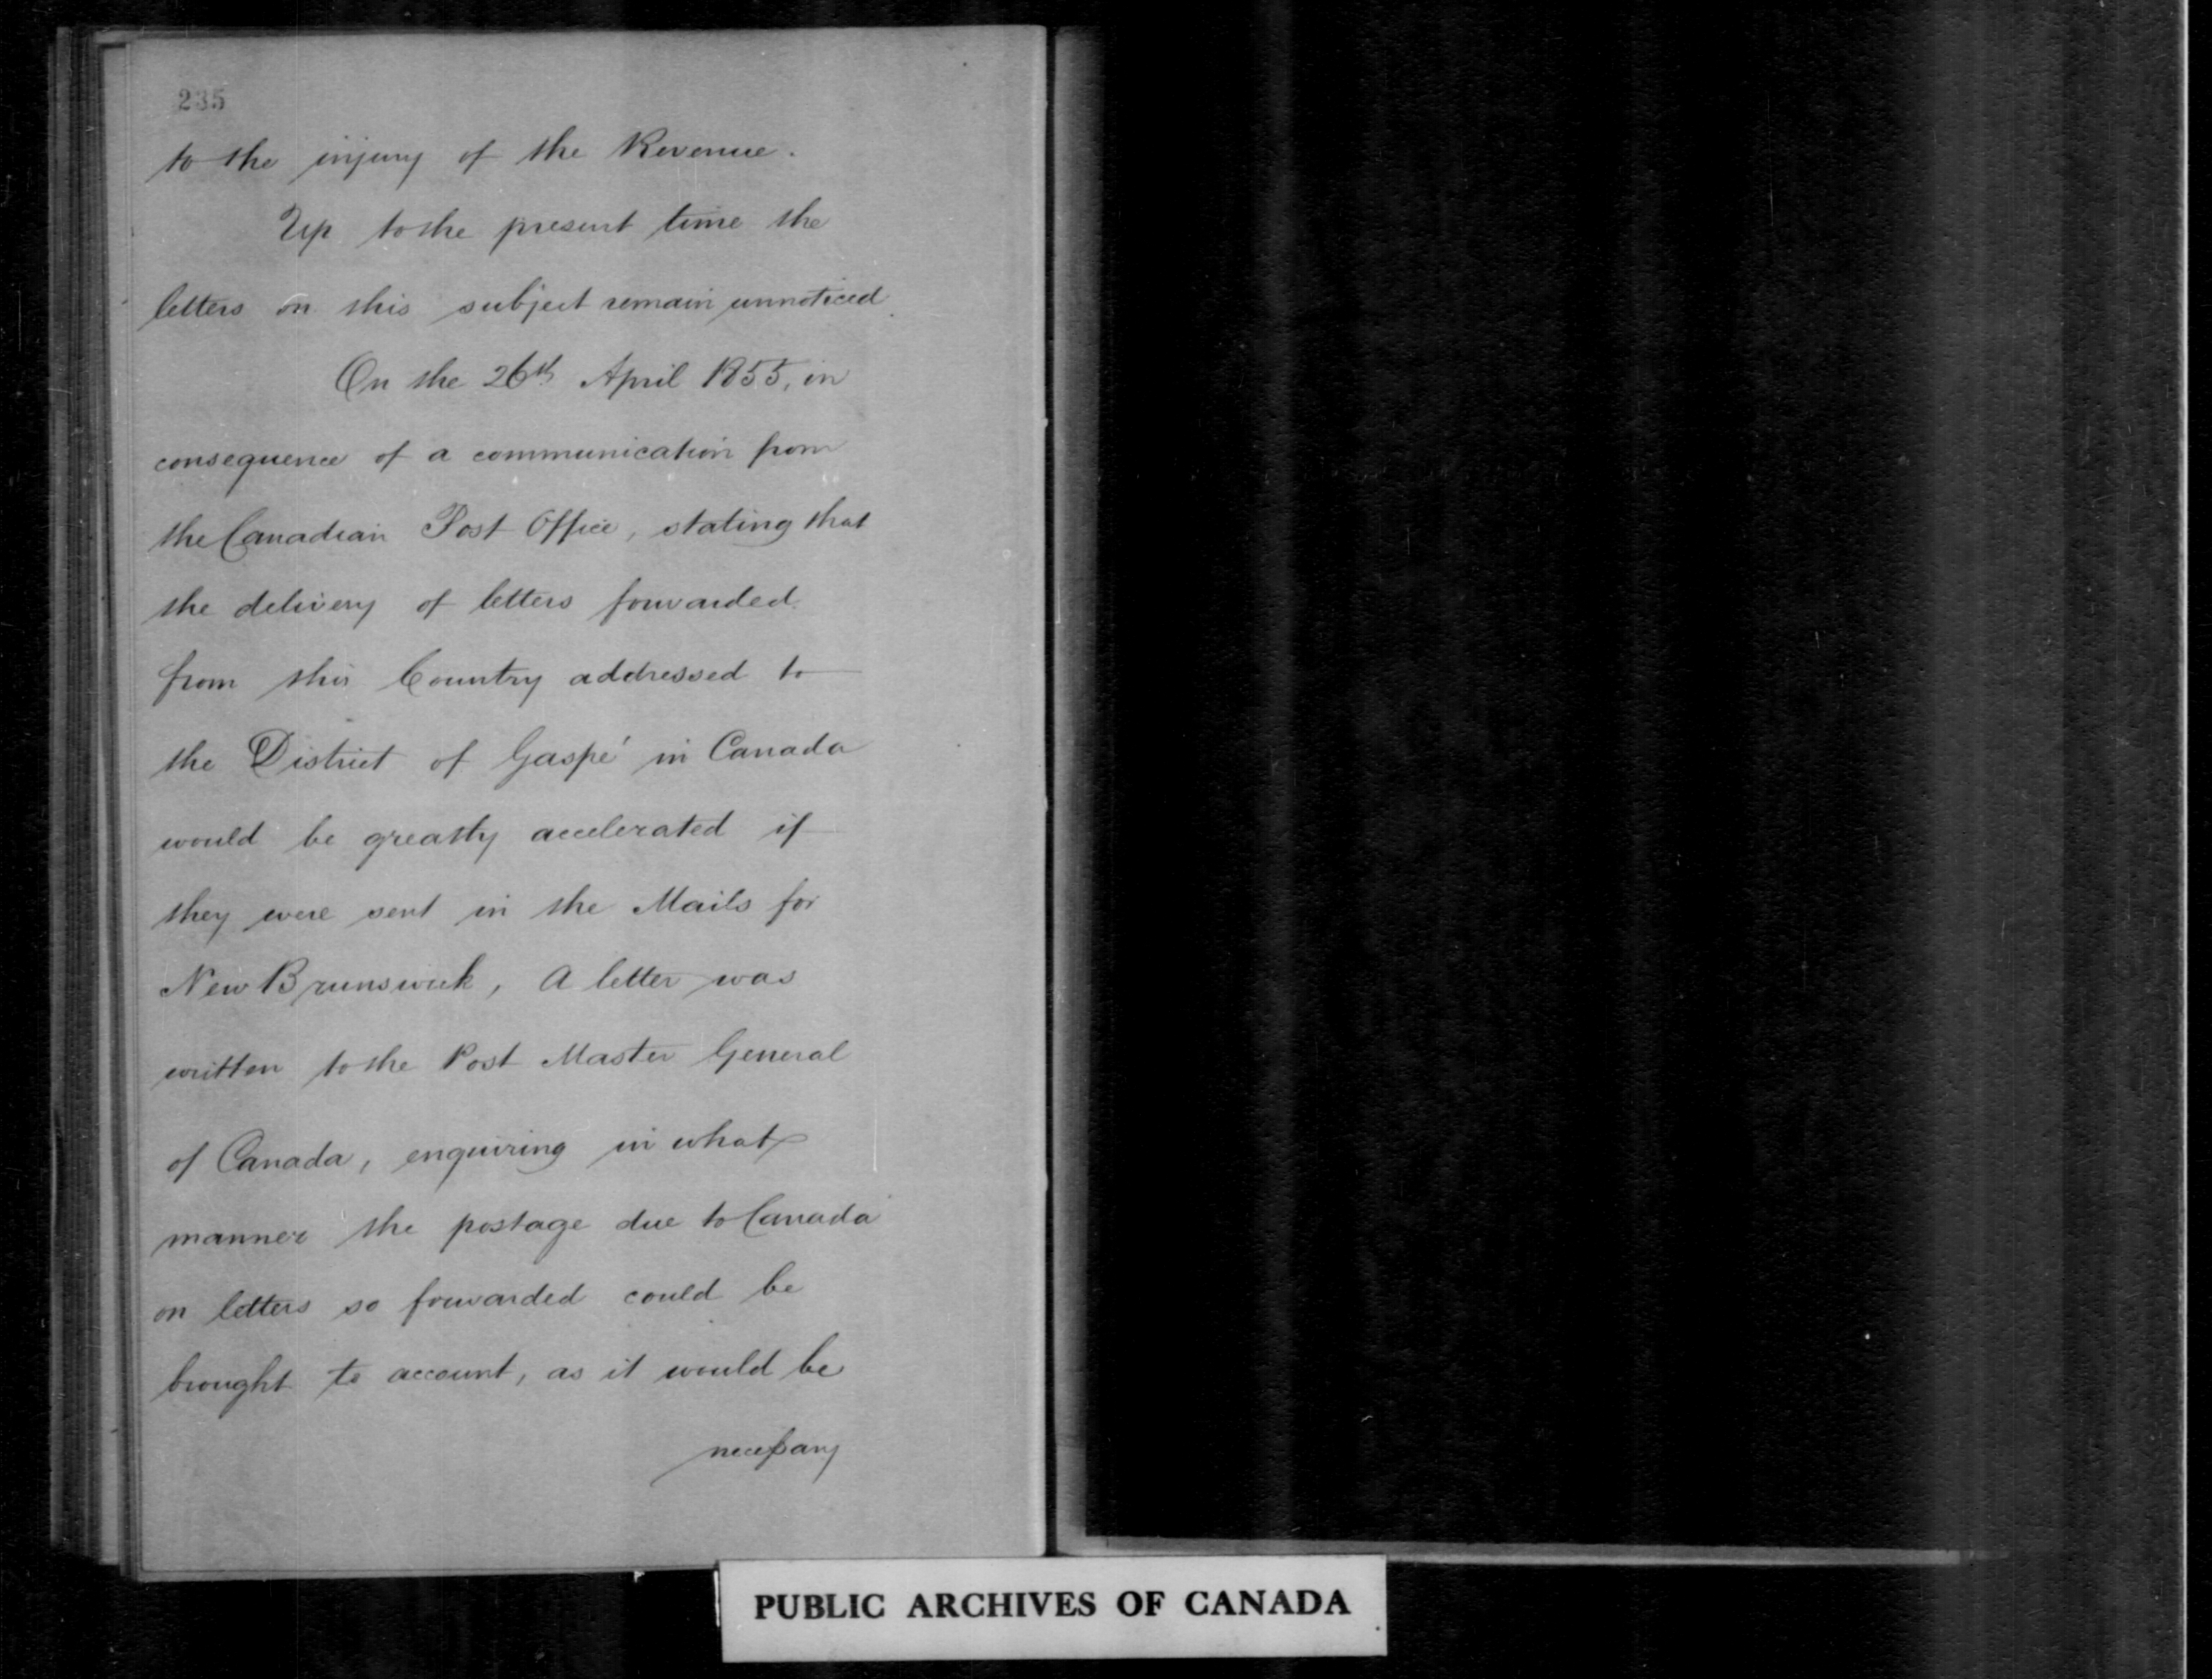 235
to the injury of the Revenue.
Up to the present time the
letters on this subject remain unnoticed.
On the 26th April 1855, in
consequence of a communication from
the Canadian Post Office, stating that
the delivery of letters forwarded
from this Country addressed to
the District of Gaspé in Canada
would be greatly accelerated if
they were sent in the Mails for
New Brunswick, A letter was
written to the Post Master General
of Canada, enquiring in what
manner the postage due to Canada
on letters so forwarded could be
brought to account, as it would be
necessary
PUBLIC ARCHIVES OF CANADA